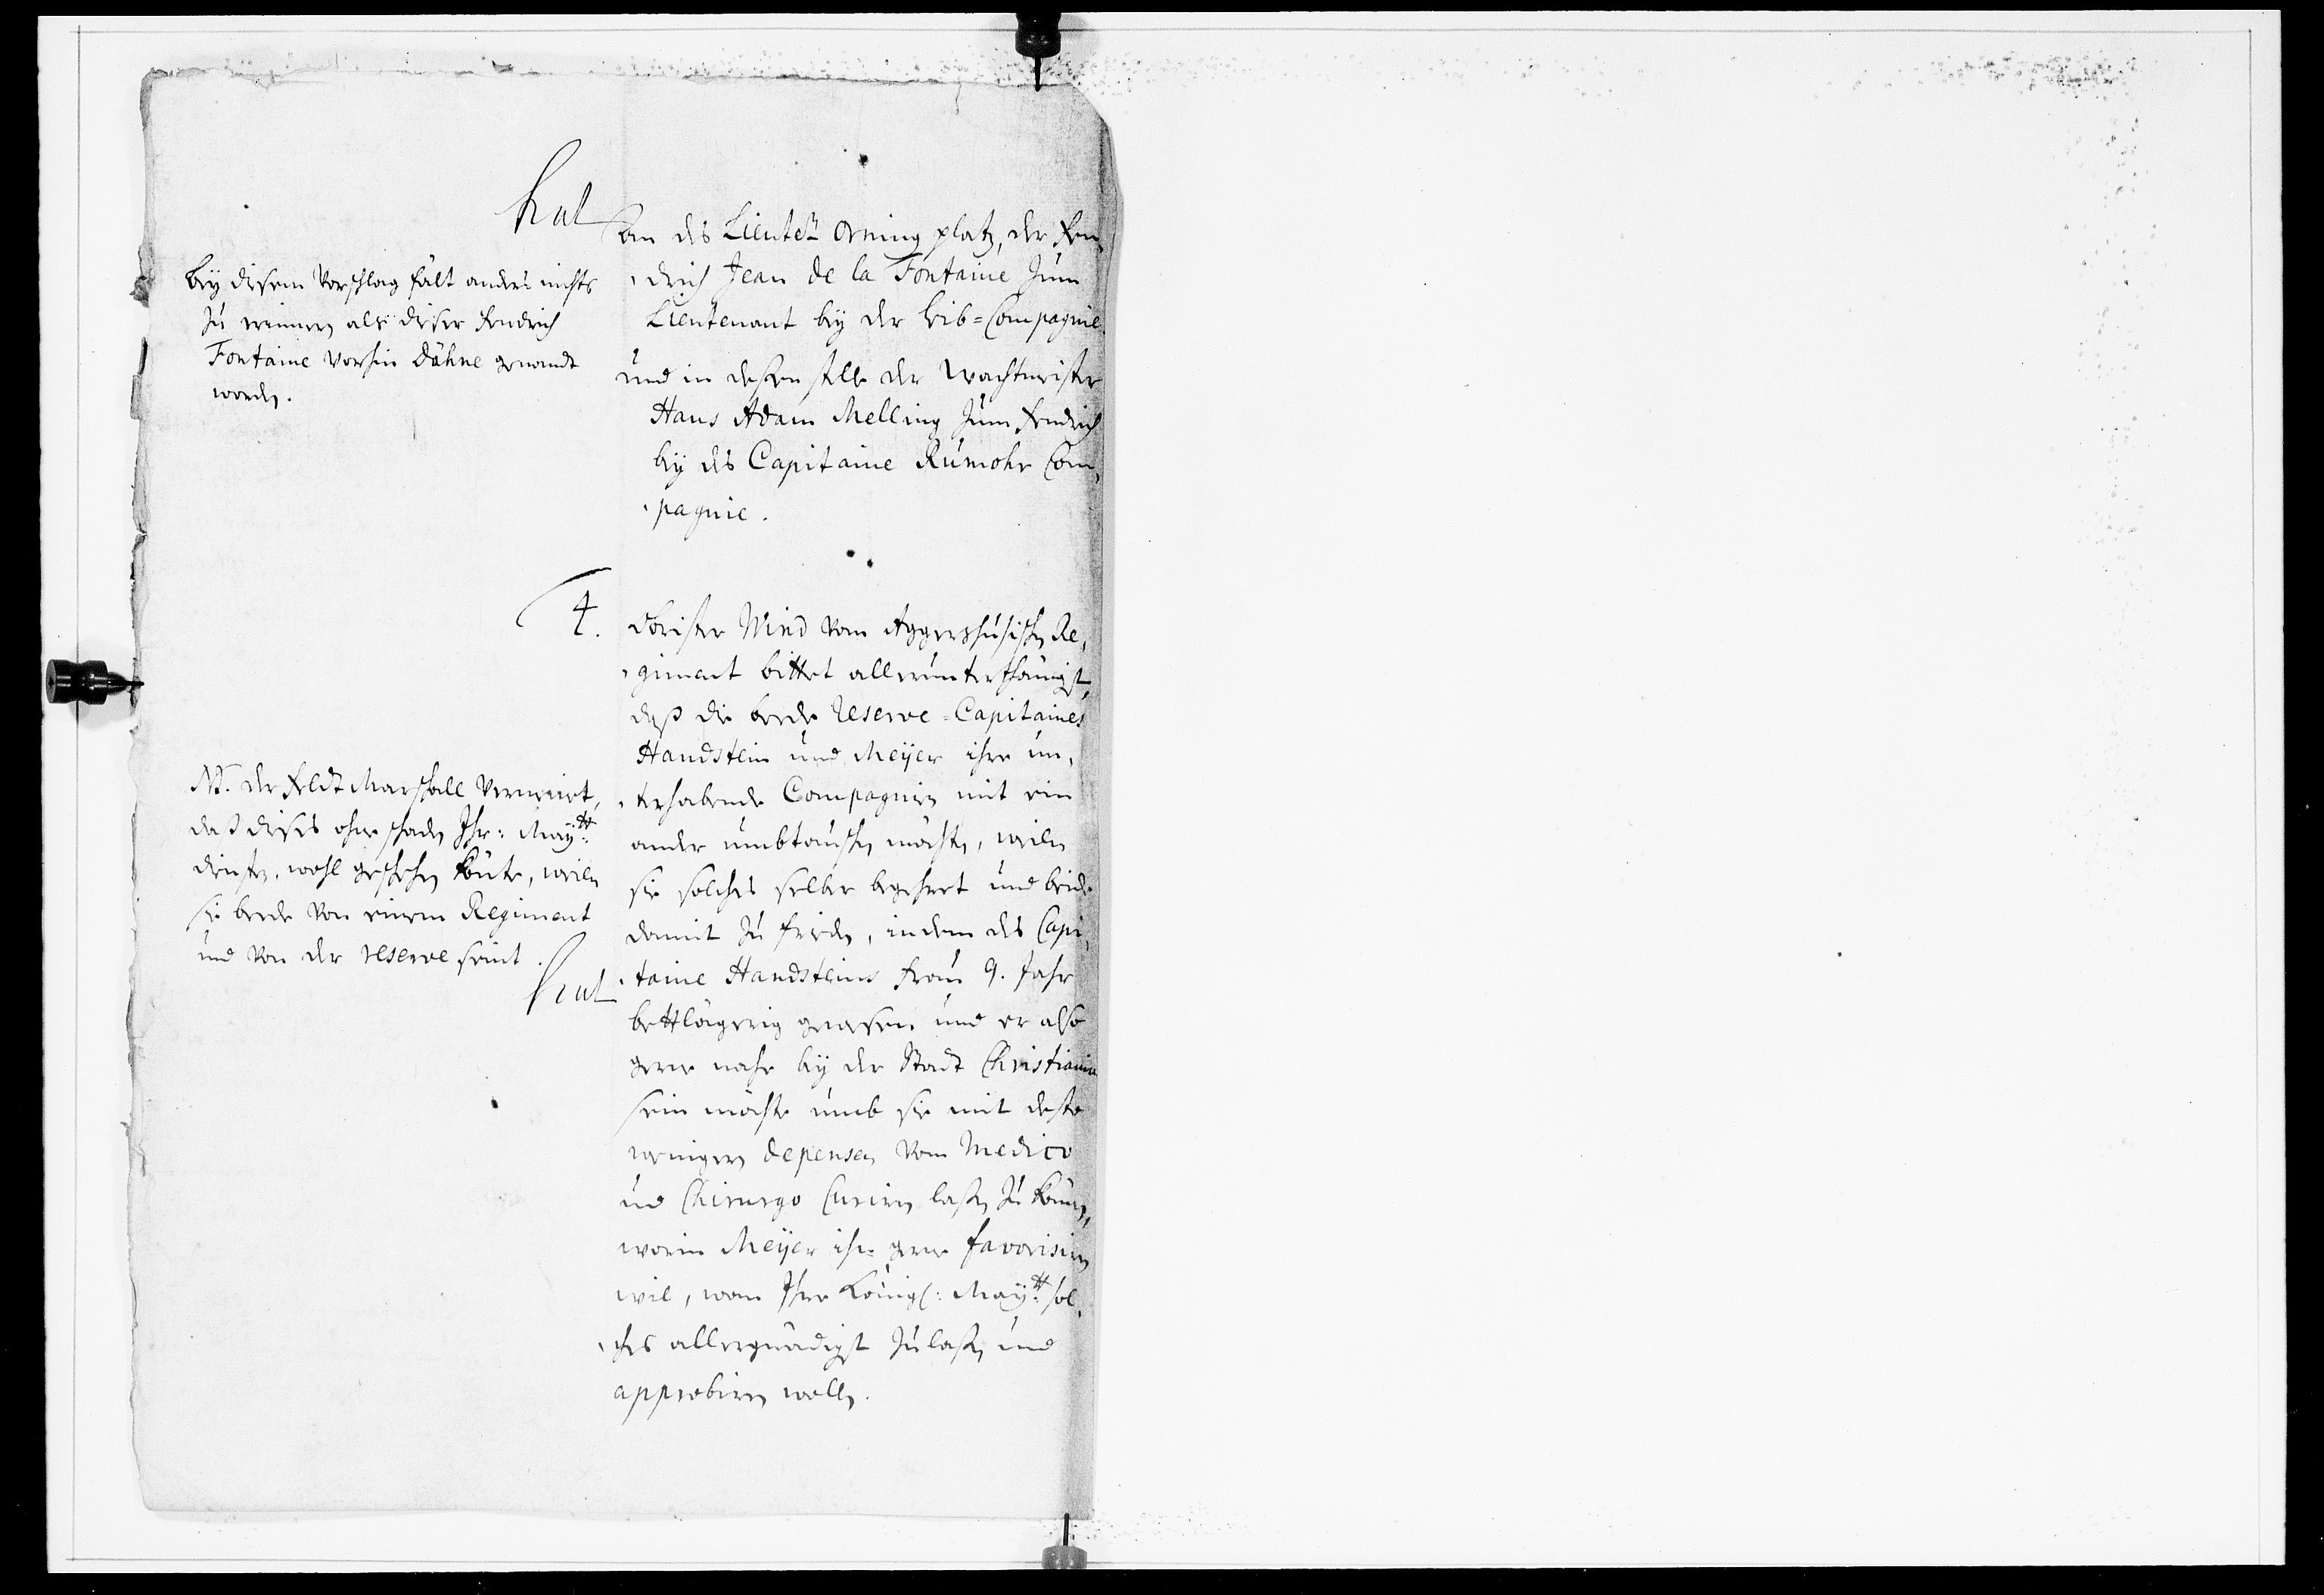 hat
An des Lieuten Orning platz, der Fen,
,drich Jean de la Fontaine zum
Lieutenant bey der Leib=Compagnie
und in deßen stelle der Wachtmeister
Hans Adam Melling zum Fendrich
bey des Capitaine Rumohr Com,
,pagnie.
Bey diesem Vorschlag fält anders nichts
zu erinnern als dieser Fendrich
Fontaine vorhin Dähne genandt
worden.
4.
Obrister Wind vom Aggershusischen Re,
,giment bittet allerunterthänigst,
daß die beede reserve=Capitaines
Handstein und Meyer ihre un,
,terhabende Compagnien mit ein
ander umbtauschen möchten, weilen
sie solches selber begehret und beide
damit zu frieden, indem des Capi,
,taine Handsteins Frau 9. Jahr
bettlägerig gewesen und er also
gerne nahe bey der Stadt Christiania
sein möchte umb sie mit desto
weinigern depensen vom Medico
und Chirurgo Curiren laßen zu können,
worin Meyer ihn gerne favorisiren
wil, wan Ihre Königl: Mayᵗᵗ: sol,
,ches allergnädigst zulaßen und
approbiren wollen.
NB. der Feldt Marschall vermeint,
daß dieses ohne schaden Ihr: Mayᵗᵗ:
diensten, wohl geschehen könte, weilen
sie beede von einem Regiment
und von der reserve seint.
hat